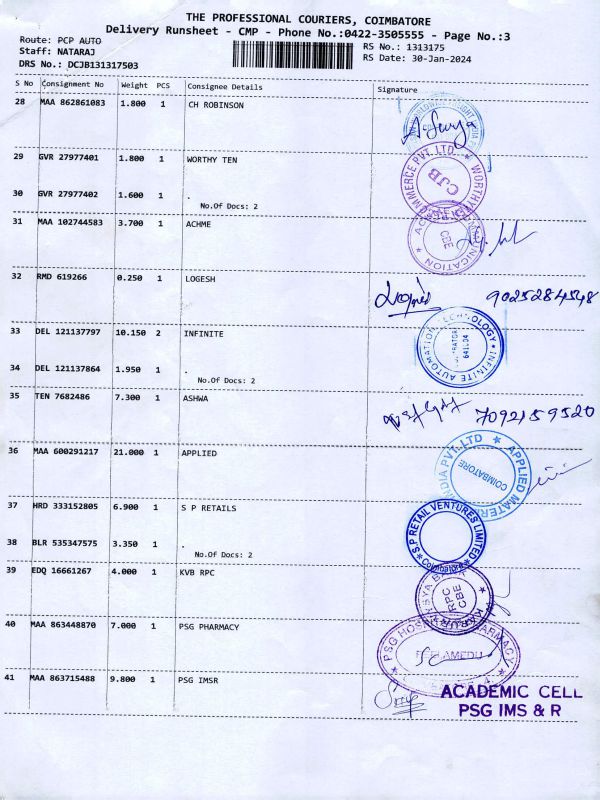 THE PROFESSIONAL COURIERS, COIMBATORE
Delivery Runsheet - CMP - Phone No.:0422-3505555 - Page No.:3
Route: PCP AUTO
Staff: NATARAJ
DRS No.: DCJB131317503
RS No.: 1313175
RS Date: 30-Jan-2024
S No Consignment No Weight PCS Consignee Details Signature
28 MAA 862861083 1.800 1 CH ROBINSON
A Surya
29 GVR 27977401 1.800 1 WORTHY TEN
CJB
30 GVR 27977402 1.600 1 .
No.Of Docs: 2
31 MAA 102744583 3.700 1 ACHME
CBE
32 RMD 619266 0.250 1 LOGESH
9025284548
33 DEL 121137797 10.150 2 INFINITE
INFINITE AUTOMATION TECHNOLOGY
641004
34 DEL 121137864 1.950 1 .
No.Of Docs: 2
35 TEN 7682486 7.300 1 ASHWA
7092159520
36 MAA 600291217 21.000 1 APPLIED
APPLIED INDIA PVT. LTD
COIMBATORE
37 HRD 333152805 6.900 1 S P RETAILS
S.P RETAIL VENTURES LIMITED
Coimbatore
38 BLR 535347575 3.350 1 .
No.Of Docs: 2
39 EDQ 16661267 4.000 1 KVB RPC
RPC
CBE
40 MAA 863448870 7.000 1 PSG PHARMACY
PSG PHARMACY
41 MAA 863715488 9.800 1 PSG IMSR
ACADEMIC CELL
PSG IMS & R